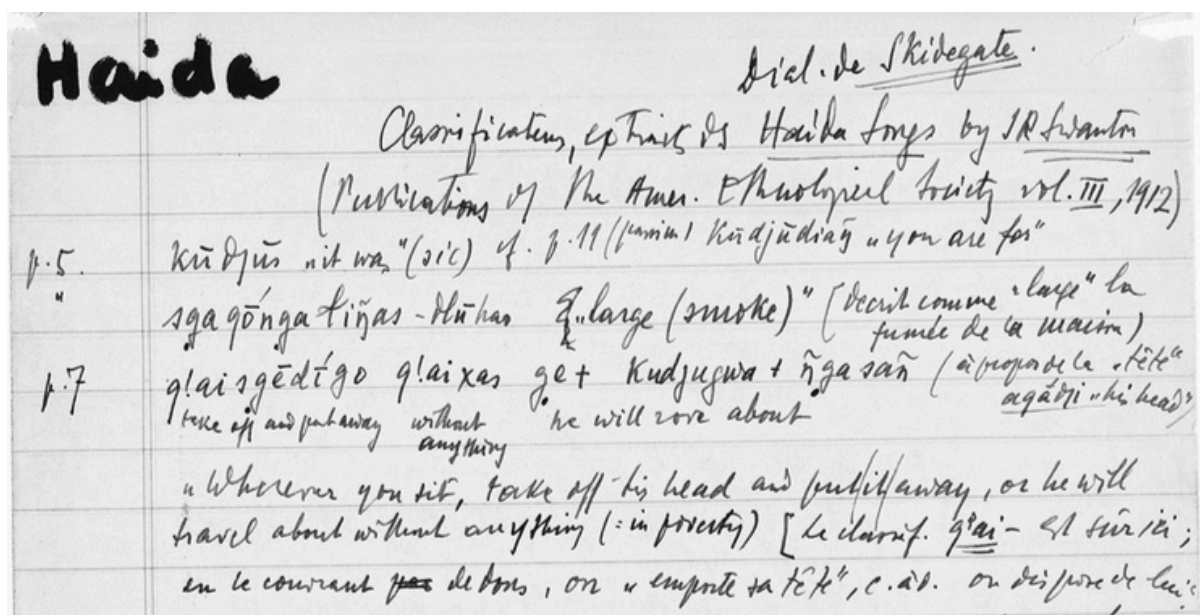 Haida
Dial. de Skidegate.
Classificateurs, extraits ds Haida Songs by JR Swanton
(Publications of the Amer. Ethnological Society vol. III, 1912)
p.5. kūdjūs „it was" (sic) cf. p.11 (passim) kūdjūdiañ „you are for"
" sgagō´nga łiñas-dlūhao „large (smoke)" [décrit comme "large" la
fumée de la maison)
p.7 q!aisgēdī´go q!aixas ge+ kudjugwa+ ñgasañ (à propos de la "tête"
take off and put away without he will rove about agādji "his head")
anything
„Wherever you sit, take off his head and put(it)away, or he will
travel about without anything (: in poverty) [Le classif. q!ai- est sûr ici;
en le couvrant de dons, on „emporte sa tête", c.àd. on dispose de lui